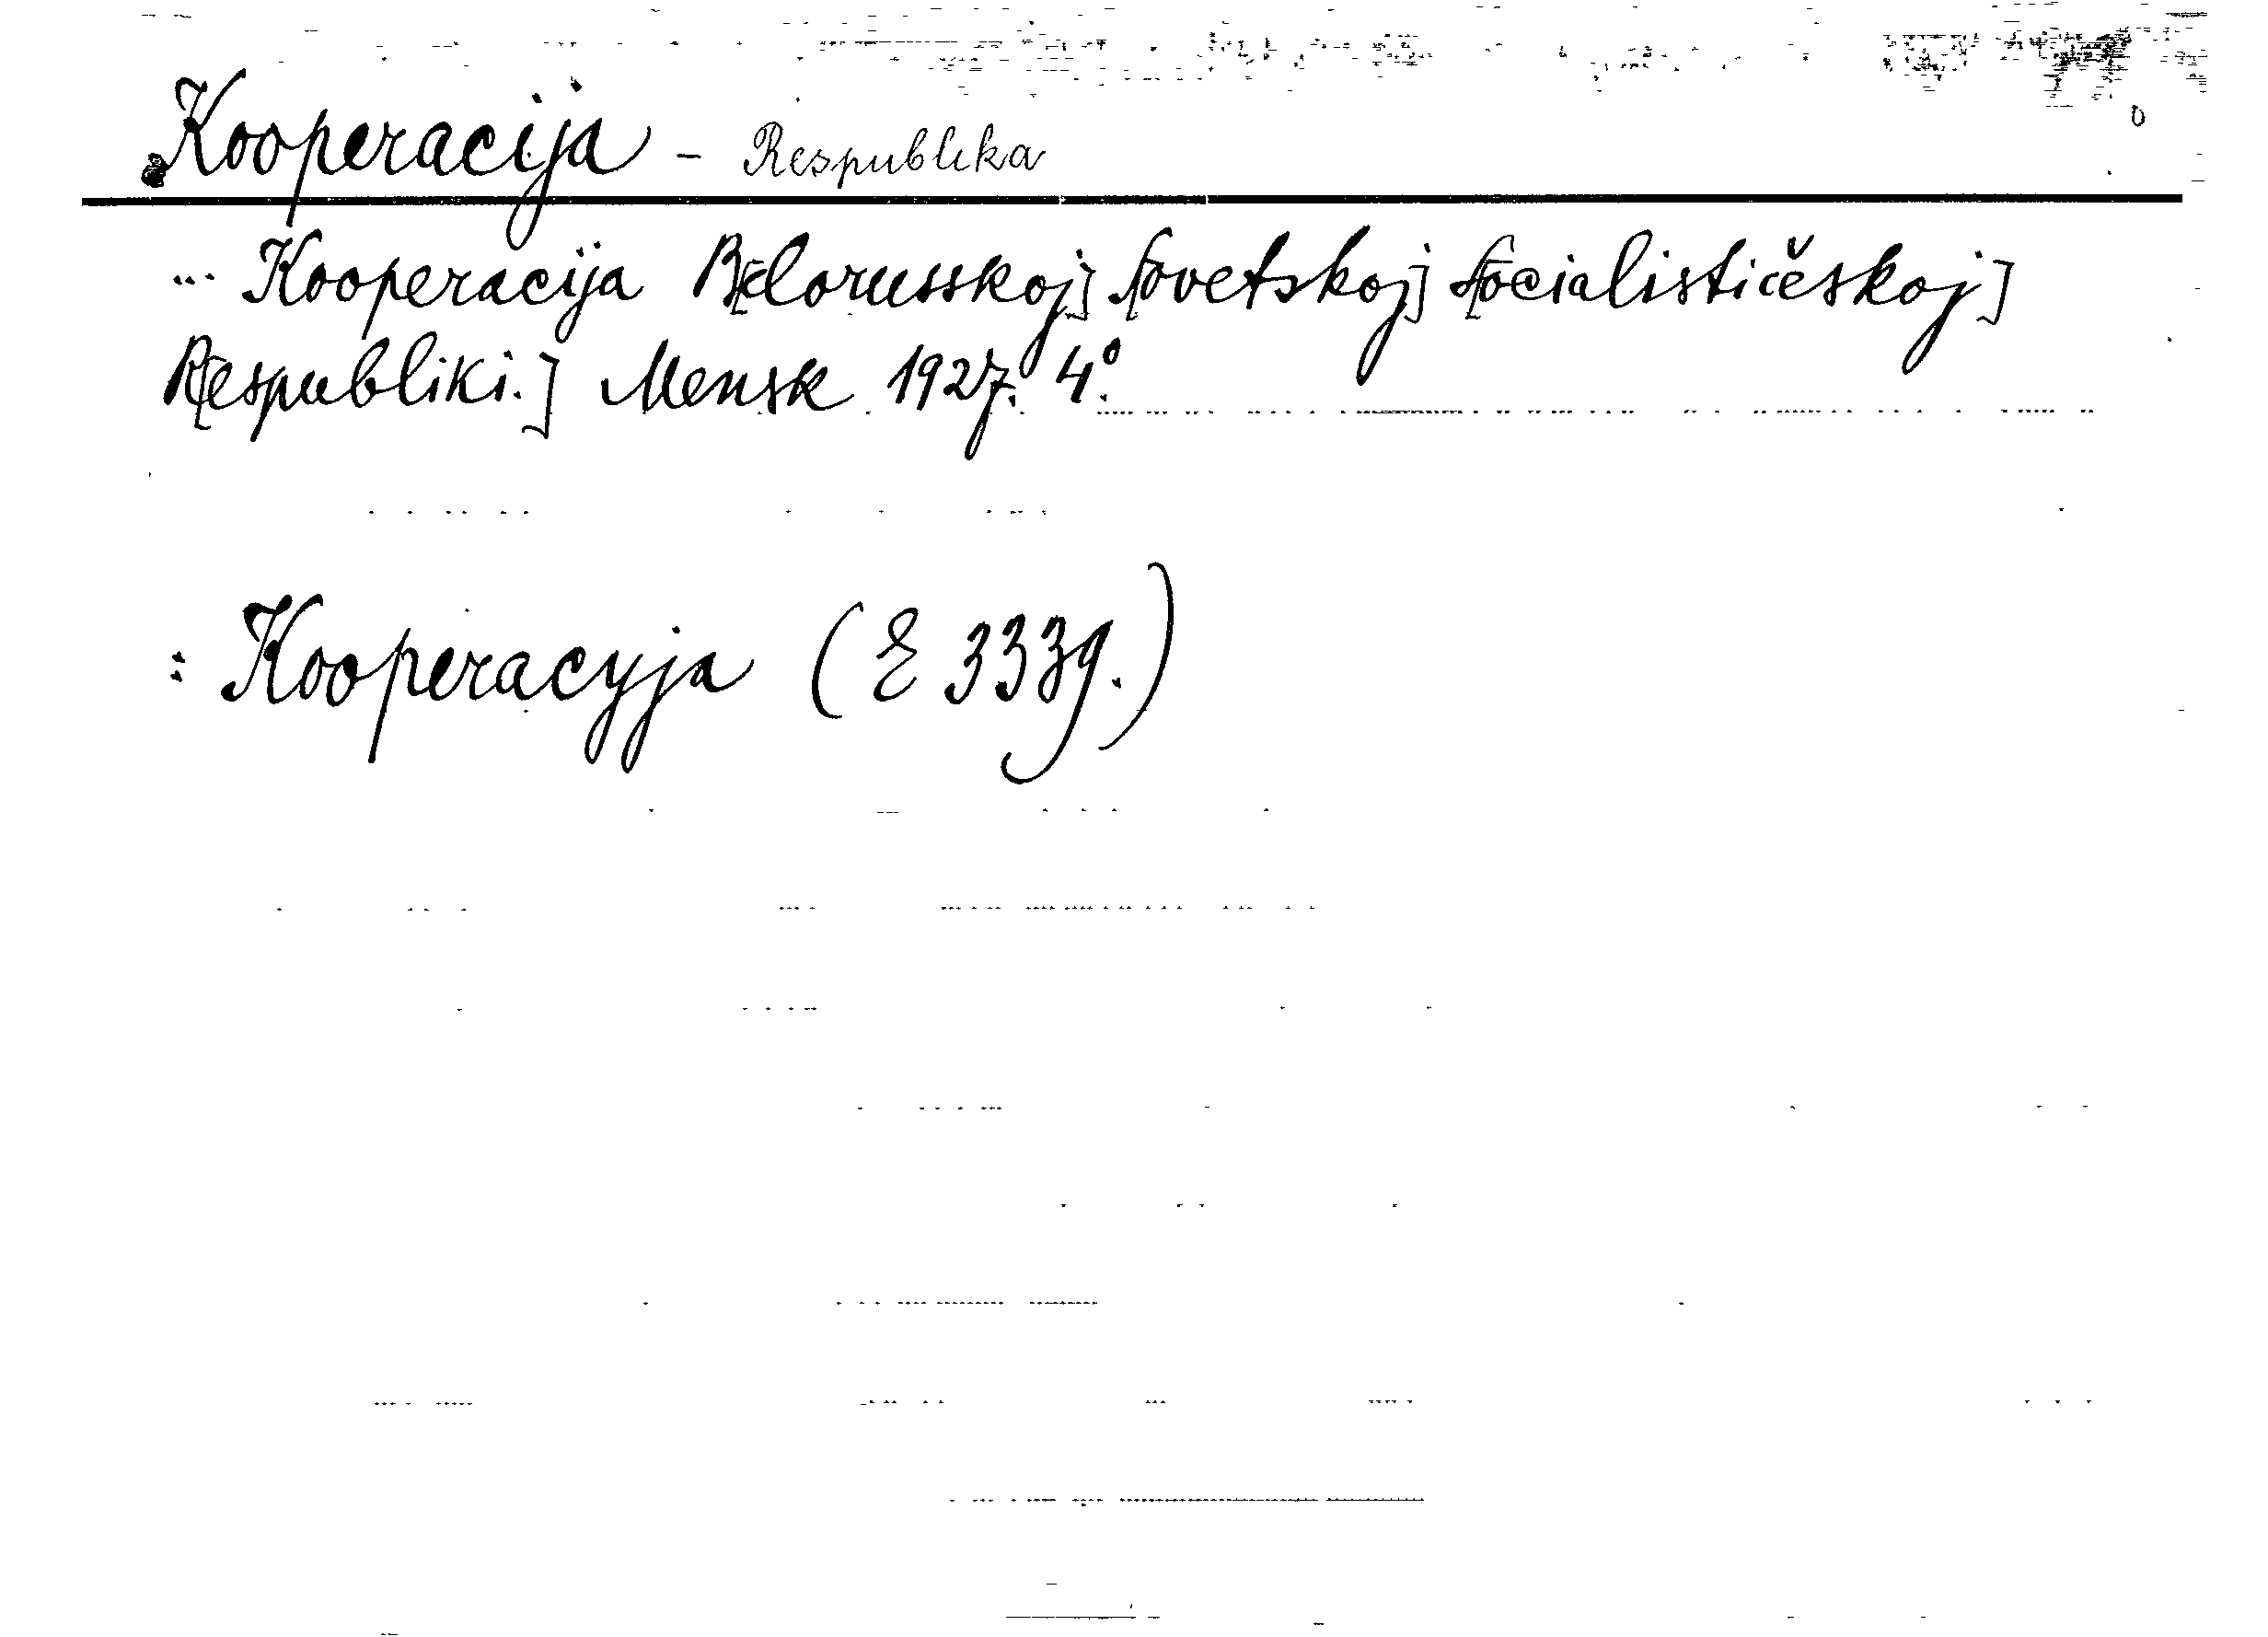 Kooperacija - Respublika
... Kooperacija B[elorusskoj] S[ovetskoj] S[ocialističeskoj]
R[espubliki.] Mensk 1927. 4°.
: Kooperacyja (E 3339.)